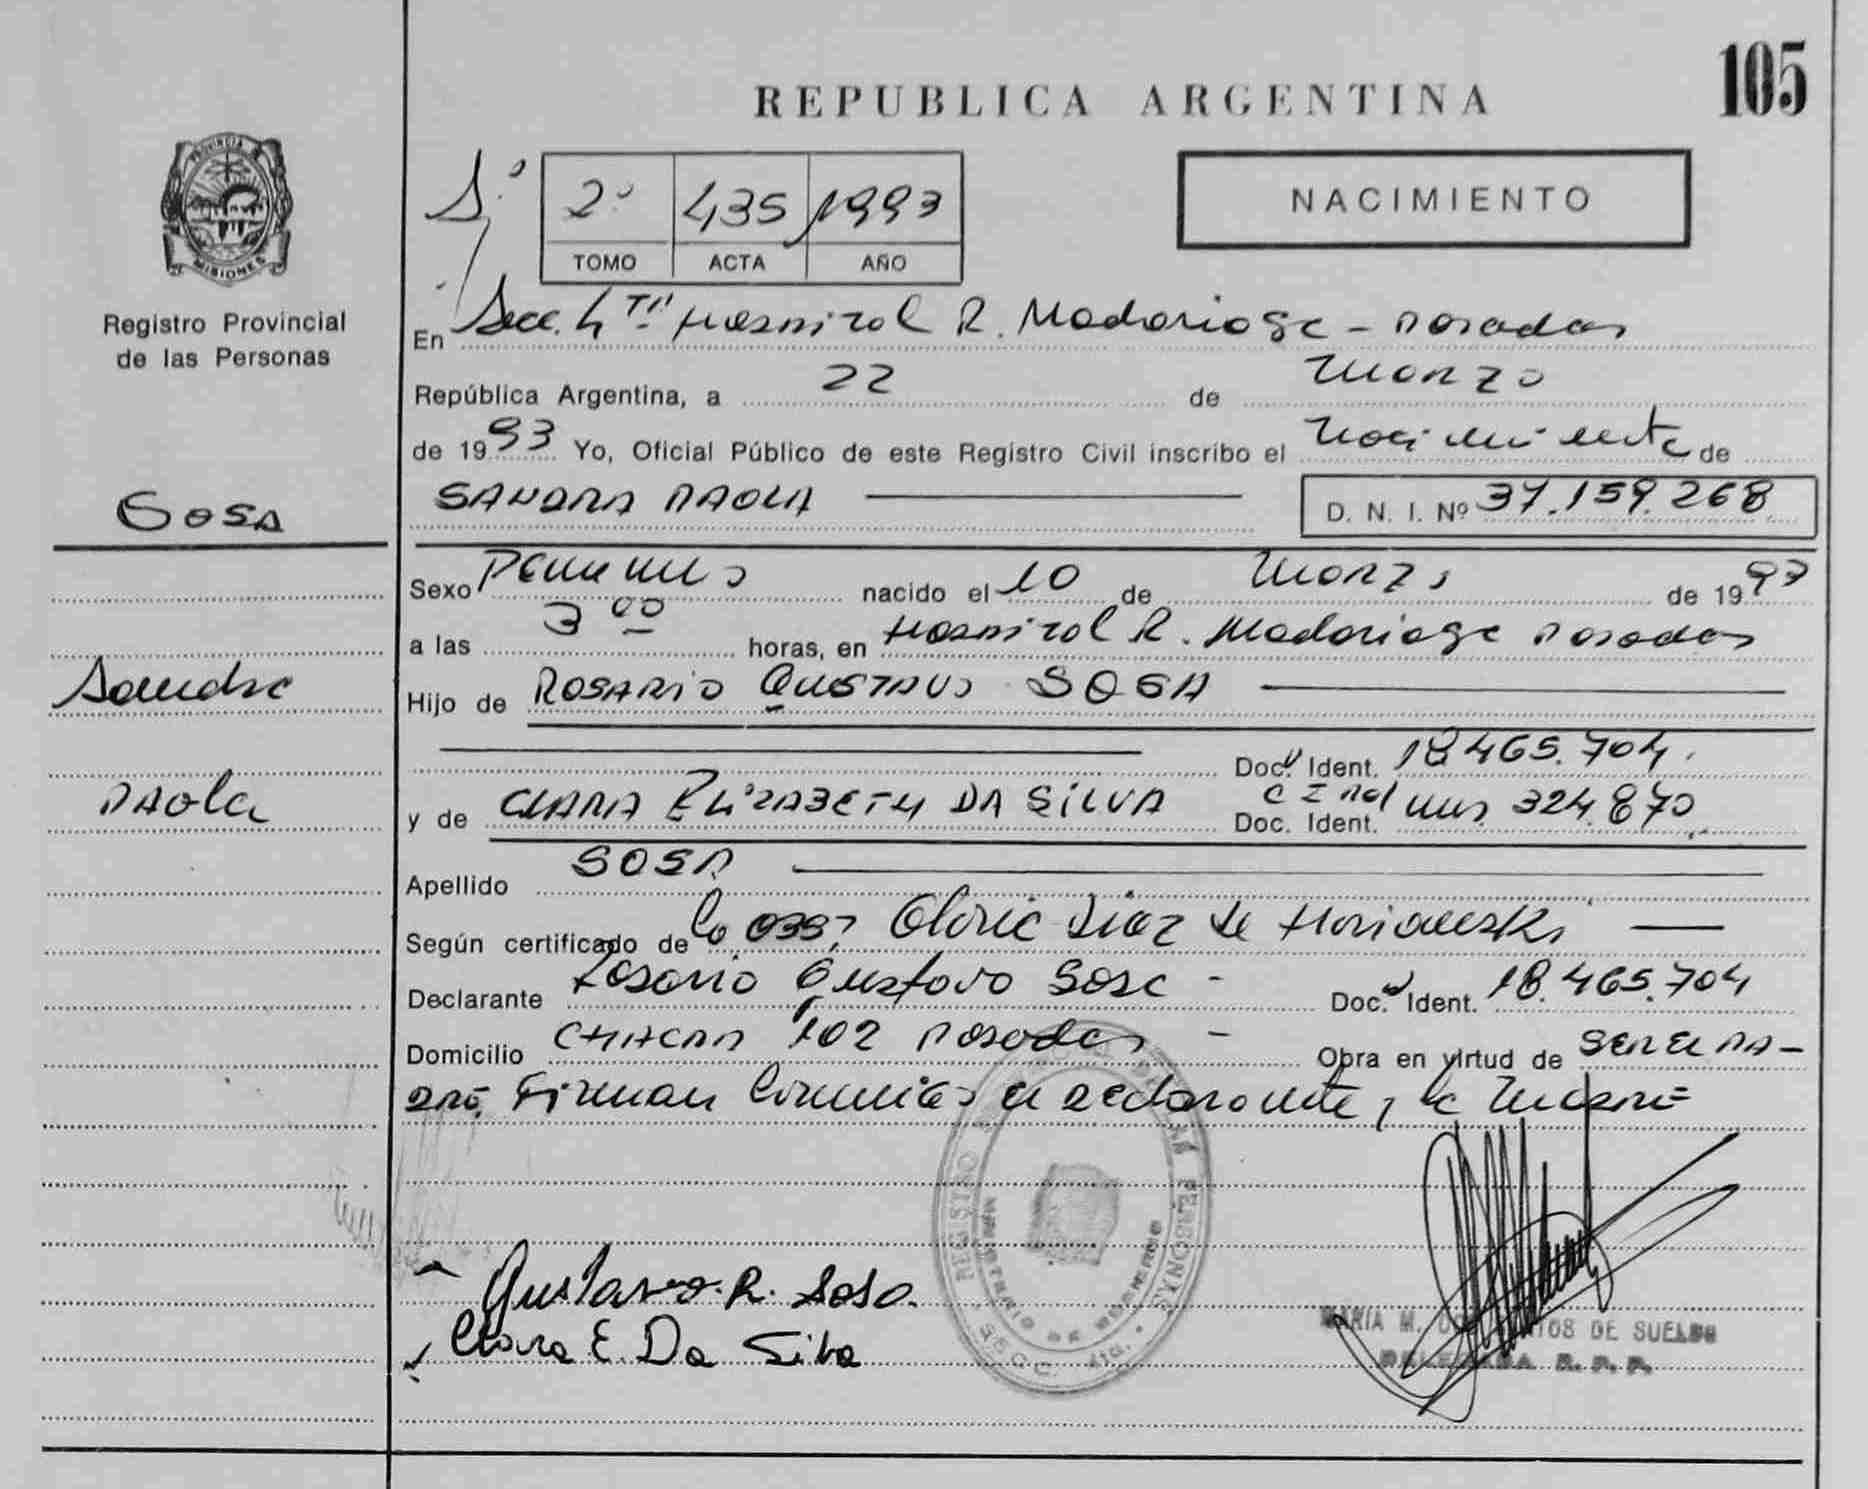 105
REPUBLICA ARGENTINA
PROVINCIA DE
MISIONES
Registro Provincial
de las Personas
2º 435 1993
TOMO ACTA AÑO
NACIMIENTO
En Secc. 4ta Hospital R. Madariaga - Posadas
República Argentina, a 22 de Marzo
de 1993 Yo, Oficial Público de este Registro Civil inscribo el nacimiento de
SOSA
SANDRA PAOLA D. N. I. Nº 37.159.268
Sexo Femenino nacido el 10 de Marzo de 1993
a las 3 00 horas, en Hospital R. Madariaga Posadas
Sandra
Hijo de ROSARIO GUSTAVO SOSA
Doc. Ident. 18.465.704
Paola
y de CLARA ELIZABETH DA SILVA Doc. Ident. C I Pol Mis. 324.870
Apellido SOSA
Según certificado de la Gloria Diaz de
Declarante Rosario Gustavo Sosa - Doc. Ident. 18.465.704
Domicilio CHACRA 102 Posadas - Obra en virtud de SER EL PA-
DRE. Firman conmigo el declarante y la madre
REGISTRO DE LAS PERSONAS
MINISTERIO DE GOBIERNO
SECC. 4ta.
Gustavo. R. Sosa.
Clara E. Da Silva
MARIA M. DE SUELDO
DELEGADA R. P. P.